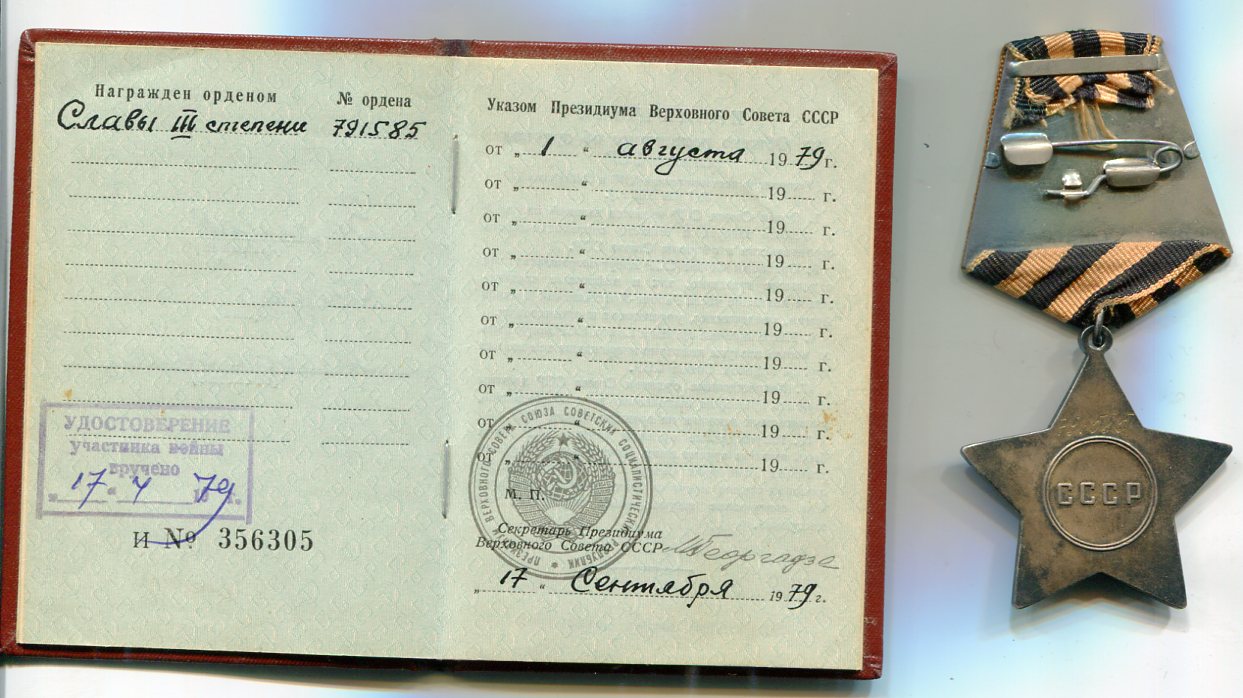 Награжден орденом
№ ордена
Славы III степени 791585
УДОСТОВЕРЕНИЕ
участника войны
вручено
„17“ 4 79 г.
И № 356305
Указом Президиума Верховного Совета СССР
от „1“ августа 1979 г.
от „ “ 19 г.
от „ “ 19 г.
от „ “ 19 г.
от „ “ 19 г.
от „ “ 19 г.
от „ “ 19 г.
от „ “ 19 г.
от „ “ 19 г.
от „ “ 19 г.
от „ “ 19 г.
М. П.
Секретарь Президиума
Верховного Совета СССР М Георгадзе
„17“ Сентября 1979 г.
СССР